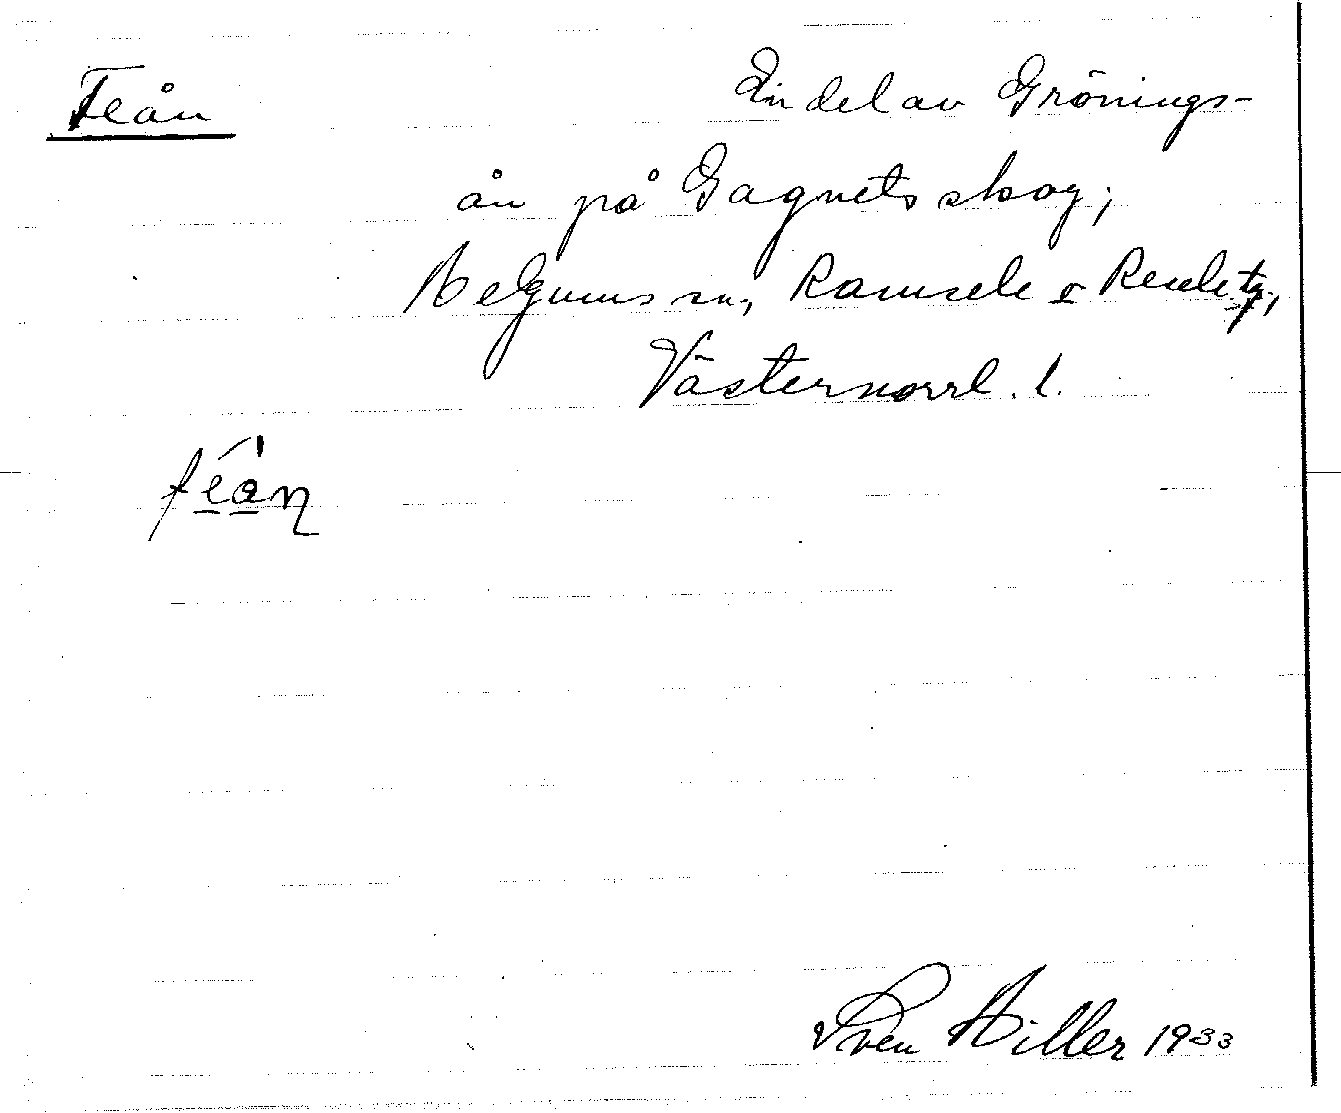 Feån
En del av Grönings-
ån på Gagnets skog;
Helgums sn, Ramsele o Resele tg,
Västernorrl. l.
feån
Sven Hiller 1933